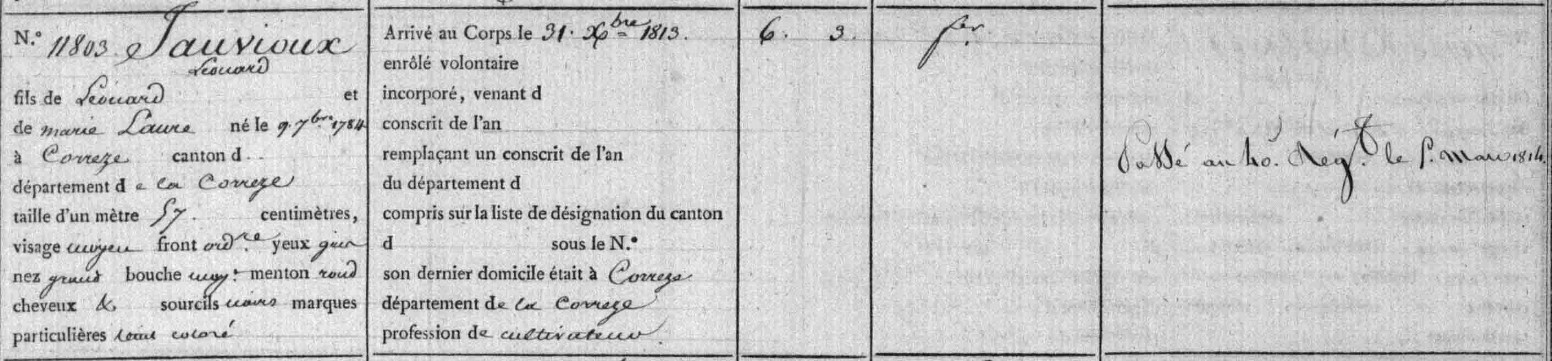 N.° 11803. Sauvioux
Léonard
fils de Léonard et
de marie Laure né le 9. 7bre 1784
à Correze canton d
département de la Correze
taille d'un mètre 57. centimètres,
visage moyen front ordre yeux gris
nez grand bouche moy: menton rond
cheveux & sourcils noirs marques
particulières teint coloré
Arrivé au Corps le 31. Xbre 1813.
enrôlé volontaire
incorporé, venant d
conscrit de l'an
remplaçant un conscrit de l'an
du département d
compris sur la liste de désignation du canton
d sous le N.°
son dernier domicile était à Correze
département de la Correze
profession de cultivateur
6. 3
fer
Passé au 40. Régt le 5. Mars 1814.